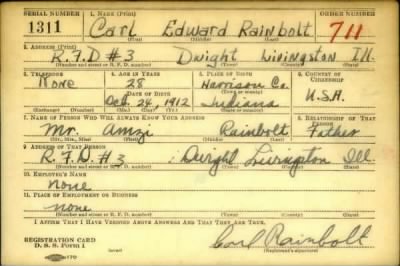 SERIAL NUMBER 1. NAME (Print) ORDER NUMBER
1311 Carl Edward Rainbolt 711
(First) (Middle) (Last)
2. ADDRESS (Print)
R.F.D #3 Dwight Livingston Ill.
(Number and street or R. F. D. number) (Town) (County) (State)
3. TELEPHONE 4. AGE IN YEARS 5. PLACE OF BIRTH 6. COUNTRY OF CITIZENSHIP
None 28 Harrison Co.
DATE OF BIRTH (Town or county)
Oct. 24, 1912 Indiana U.S.A.
(Exchange) (Number) (Mo.) (Day) (Yr.) (State or country)
7. NAME OF PERSON WHO WILL ALWAYS KNOW YOUR ADDRESS 8. RELATIONSHIP OF THAT PERSON
Mr. Amzi Rainbolt Father
(Mr., Mrs., Miss) (First) (Middle) (Last)
9. ADDRESS OF THAT PERSON
R.F.D. #3 Dwight Livingston Ill.
(Number and street or R. F. D. number) (Town) (County) (State)
10. EMPLOYER'S NAME
None
11. PLACE OF EMPLOYMENT OR BUSINESS
none
(Number and street or R. F. D. number) (Town) (County) (State)
I AFFIRM THAT I HAVE VERIFIED ABOVE ANSWERS AND THAT THEY ARE TRUE.
REGISTRATION CARD
D. S. S. Form 1 Carl Rainbolt
(over) (Registrant's signature)